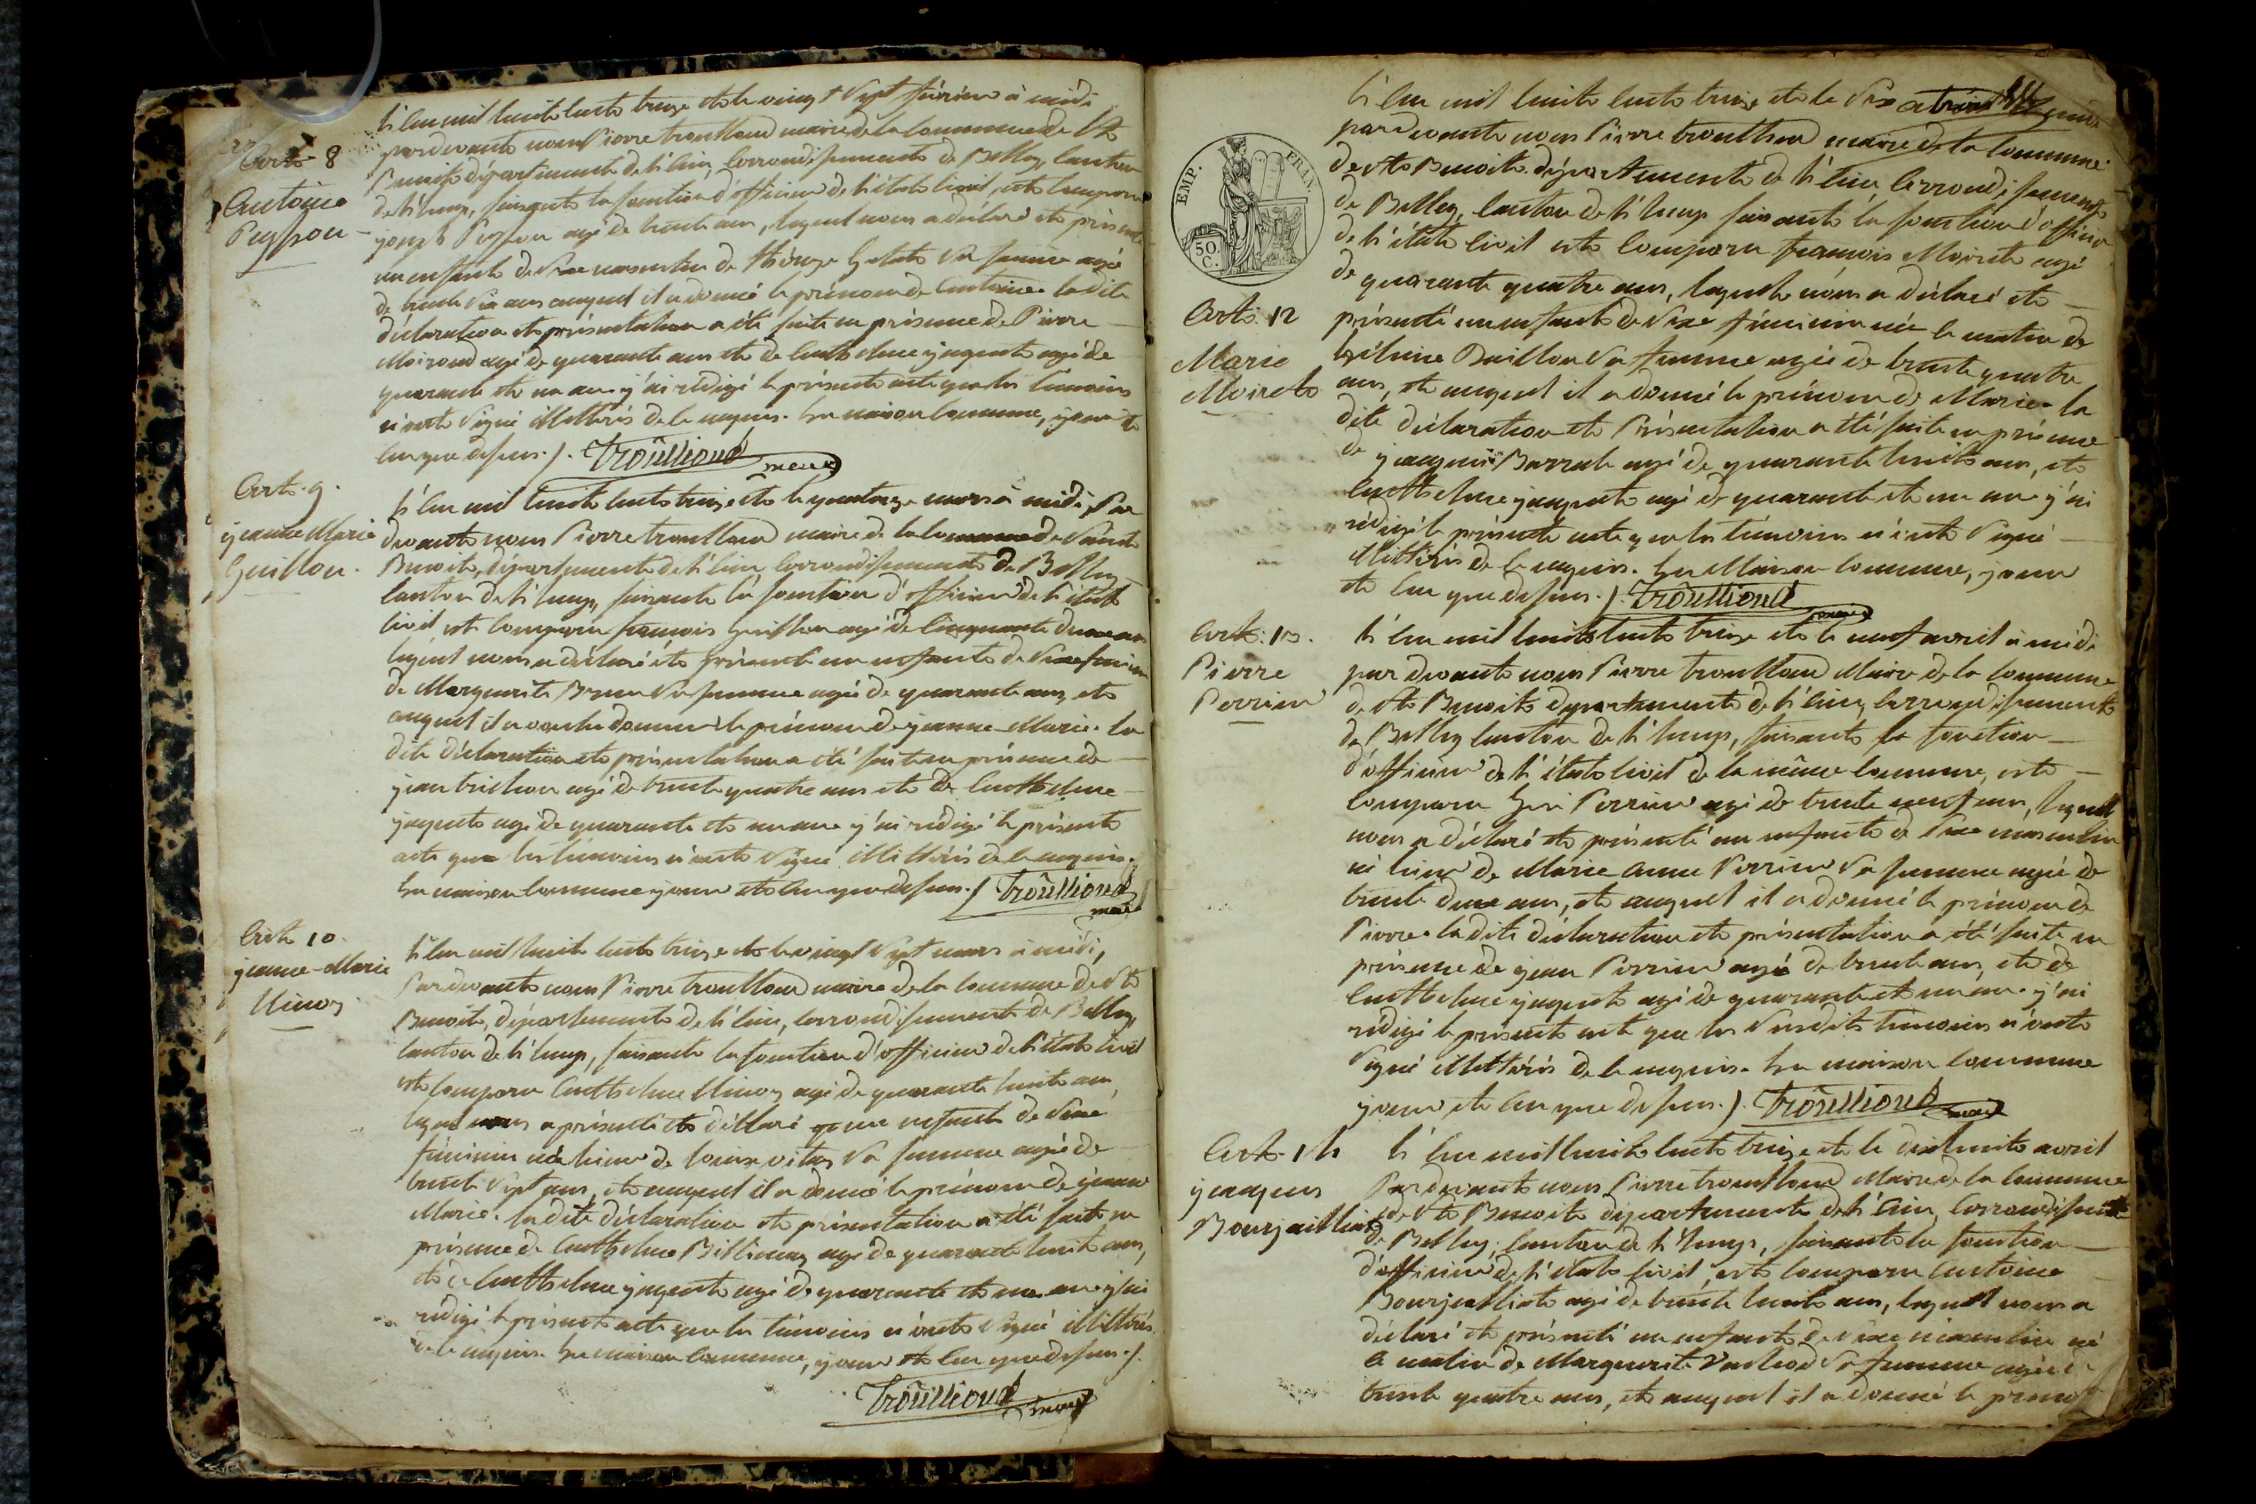 Arte 8
Antoine
Pugeon
L'an mil huit cents treize et le vingt sept février à midi
par devante nous Pierre trouilloud maire de la commune de St
Benoit département de l'ain, larrondissemente de Belley, canton
de l'huys, faisante la fonction d'officier de l'état civil, est comparu
joseph Pugeon agé de trente ans, lequel nous a déclaré et présenté
un enfante de sexe masculin de sa femme agée
de trente six ans auquel il a donné le prénom de Antoine. la dite
déclaration et présentation a été faite en présence de Pierre
Moiroud agé de quarante ans et de Anthelme jaquete agé de
quarante et un an. j'ai rédigé le présente acte que les témoins
n'onts signé illittérés de ce enquis. En maison commune, jour et
an que dessus. /. Trouilloud maire
Arte. 9.
jeanne Marie
Guillon.
L'an mil huit cents treize et le quatorze mars à midi, Par
devante nous Pierre trouilloud maire de la commune de Sainte
Benoite, département de l'ain, larrondissemente de Belley
canton de l'huys, faisante la fonction d'officier de l'état
civil est comparu francois Guillon agé de cinquante deux ans
lequel nous a déclaré et présenté un enfante de sexe féminin
de Marguerite Brun sa femme agée de quarante ans, et
auquel il a voulu donner le prénom de jeanne Marie. la
dite déclaration et présentation a été faite en présence de
jean agé de trente quatre ans et de Anthelme
jaquete agé de quarante et un an. j'ai rédigé le présente
acte que les témoins n'onts signé illittérés de ce enquis.
En maison commune jour et an que dessus. / Trouilloud
maire
Arte 10.
jeanne-Marie
L'an mil huit cents treize et le vingt sept mars à midi,
Par devante nous Pierre trouilloud maire de la commune de St
Benoite, département de l'ain, larrondissemente de Belley
canton de l'huys, faisante la fonction d'officier de l'état civil
est comparu Anthelme agé de quarante huite ans
lequel nous a présenté et déclaré un enfante de sexe
féminin née hier de sa femme agée de
trente sept ans, et auquel il a donné le prénom de jeanne
Marie. la dite déclaration et présentation a été faite en
présence de Anthelme agé de quarante huit ans,
et de Anthelme jaquete agé de quarante et un an. j'ai
rédigé le présente acte que les témoins n'onts signé illittérés
de ce enquis. En maison commune, jour et an que dessus. /.
Trouilloud maire
EMP. FRAN.
50 C.
Arte. 12
Marie
Moirete
L'an mil huite cents treize et le six
par devante nous Pierre trouilloud maire de la commune
de Ste Benoite département de l'ain larrondissemente
de Belley, canton de l'huys faisante la fonction d'officier
de l'état civil est comparu francois Moirete agé
de quarante quatre ans, lequel nous a déclaré et
présenté un enfante de sexe féminin née le matin de
Baillon sa femme agée de trente quatre
ans, et auquel il a donné le prénom de Marie. la
dite déclaration et Présentation a été faite en présence
de jacques agé de quarante huite ans, et
Anthelme jaquete agé de quarante et un an. j'ai
rédigé le présente acte que les témoins n'onts signé
illittérés de ce enquis. En Maison commune, jour
et an que dessus. /. Trouilloud maire
Arte. 13.
Pierre
Perrin
L'an mil huite cents treize et le neuf avril à midi
par devante nous Pierre trouilloud Maire de la commune
de Ste Benoite département de l'ain, larrondissemente
de Belley canton de l'huys, faisante la fonction
d'officier de l'état civil de la même commune, est
comparu Perrin agé de trente neuf ans, lequel
nous a déclaré et présenté un enfante de sexe masculin
né hier de Marie Anne Perrin sa femme agée de
trente deux ans, et auquel il a donné le prénom de
Pierre. la dite déclaration et présentation a été faite en
présence de jean Perrin agé de trente ans, et de
Anthelme jaquete agé de quarante et un an. j'ai
rédigé le présente acte que les susdits témoins n'onts
signé illittérés de ce enquis. En maison commune
jour et an que dessus. /. Trouilloud maire
Arte. 14
jacques
Bourjailliat
L'an mil huite cents treize et le dix huite avril
Par devante nous Pierre trouilloud Maire de la commune
de Ste Benoite département de l'ain, larrondissemente
de Belley, canton de l'huys, faisante la fonction
d'officier de l'état civil, est comparu Antoine
Bourjailliat agé de trente huite ans, lequel nous a
déclaré et présenté un enfante de sexe masculin né
le matin de Marguerite sa femme agée de
trente quatre ans, et auquel il a donné le prénom